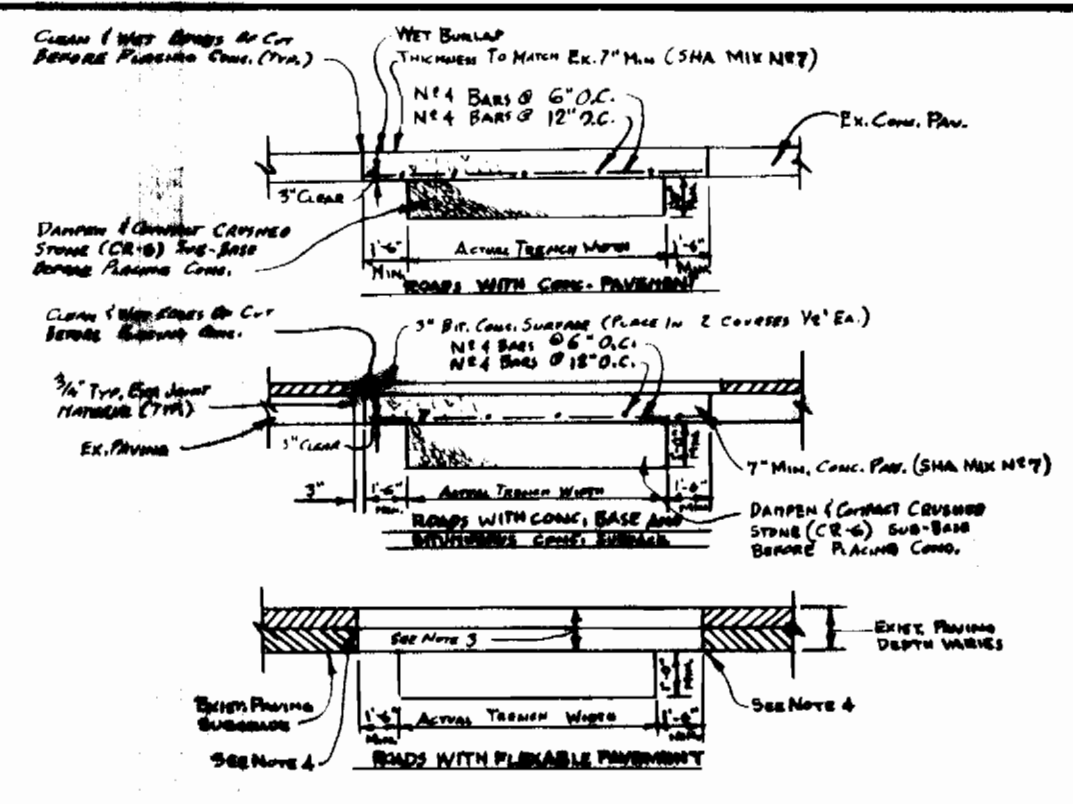 CLEAN & WET EDGES OF CUT
BEFORE PLACING CONC. (TYP.)
WET BURLAP
THICKNESS TO MATCH EX. 7" MIN (SHA MIX Nº7)
Nº 4 BARS @ 6" O.C.
Nº 4 BARS @ 12" O.C.
EX. CONC. PAV.
3" CLEAR
DAMPEN & COMPACT CRUSHED
STONE (CR-6) SUB-BASE
BEFORE PLACING CONC.
1'-6"
MIN.
ACTUAL TRENCH WIDTH
1'-6"
MIN.
ROADS WITH CONC. PAVEMENT
CLEAN & WET EDGES OF CUT
BEFORE PLACING CONC.
3" BIT. CONC. SURFACE (PLACE IN 2 COURSES 1/2" EA.)
Nº 4 BARS @ 6" O.C.
Nº 4 BARS @ 12" O.C.
3/4" TYP. EXP. JOINT
MATERIAL (TYP.)
EX. PAVING
3" CLEAR
1'-0"
MIN.
7" MIN. CONC. PAV. (SHA MIX Nº7)
3"
1'-6"
MIN.
ACTUAL TRENCH WIDTH
1'-6"
MIN.
ROADS WITH CONC. BASE AND
BITUMINOUS CONC. SURFACE
DAMPEN & COMPACT CRUSHED
STONE (CR-6) SUB-BASE
BEFORE PLACING CONC.
SEE NOTE 3
EXIST. PAVING
DEPTH VARIES
1'-0"
MIN.
EXIST. PAVING
SUBGRADE
SEE NOTE 4
1'-6"
MIN.
ACTUAL TRENCH WIDTH
1'-6"
MIN.
SEE NOTE 4
ROADS WITH FLEXABLE PAVEMENT